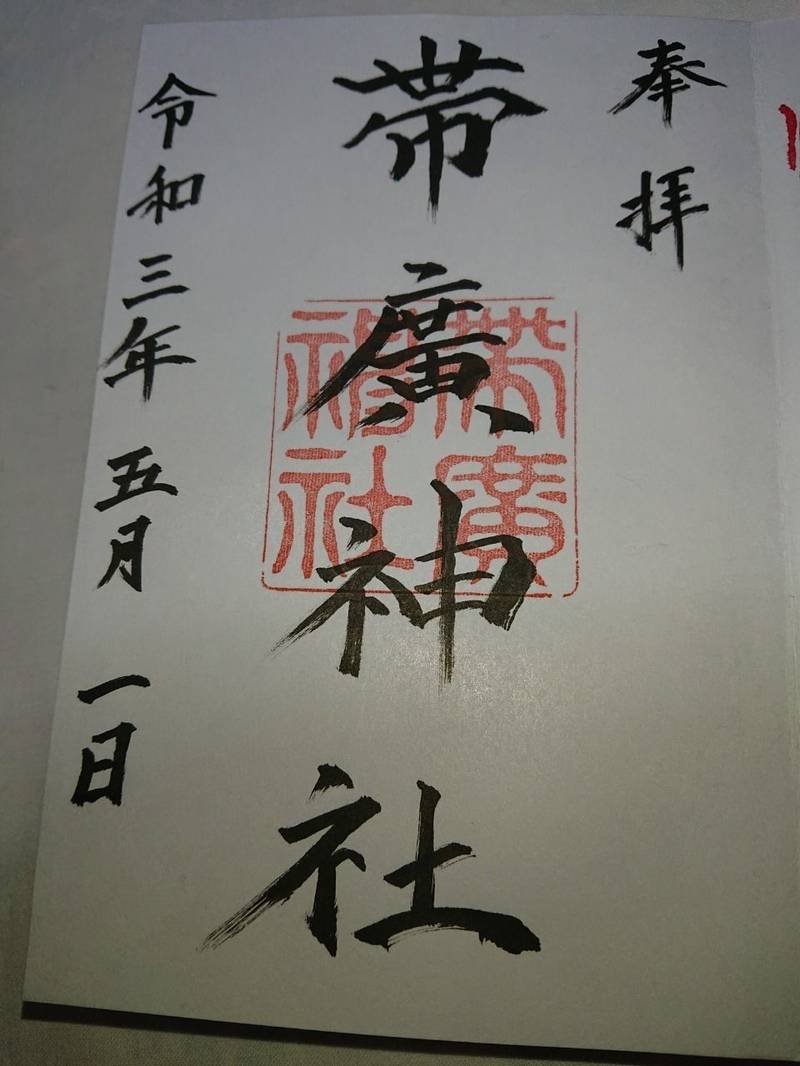 奉拝
帯廣神社
帯廣神社
令和三年五月一日